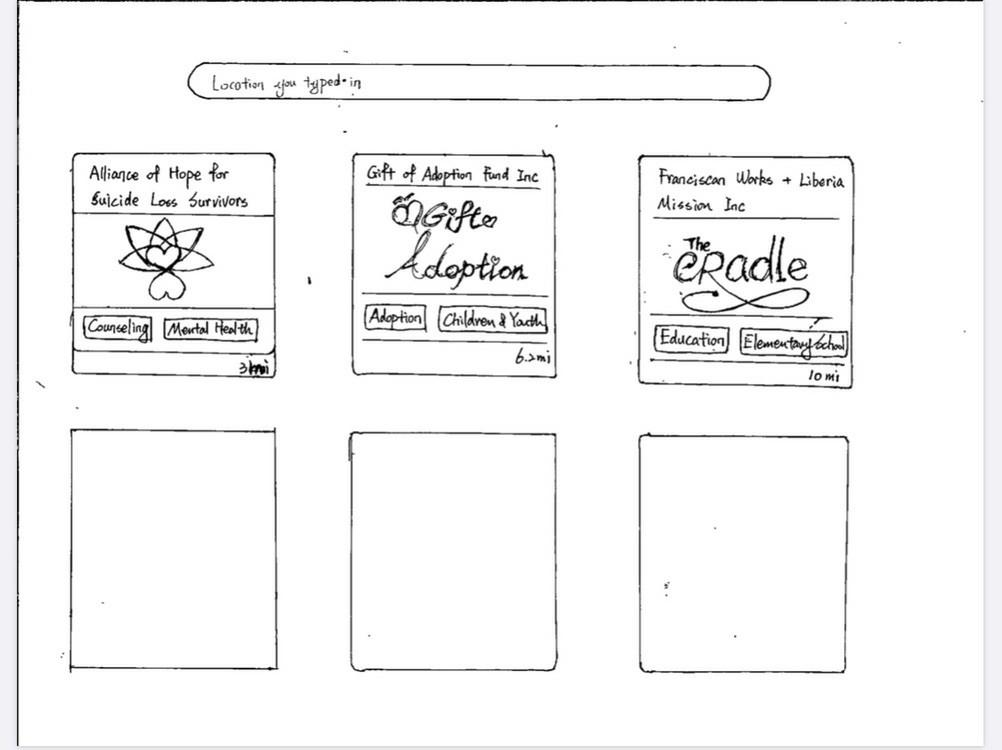 Location you typed-in
Alliance of Hope for
Suicide Loss Survivors
Counseling
Mental Health
Gift of Adoption Fund Inc
Gift of
Adoption
Adoption
Children & Youth
6.2mi
Franciscan Works + Liberia
Mission Inc
The
Cradle
Education
Elementary School
10 mi